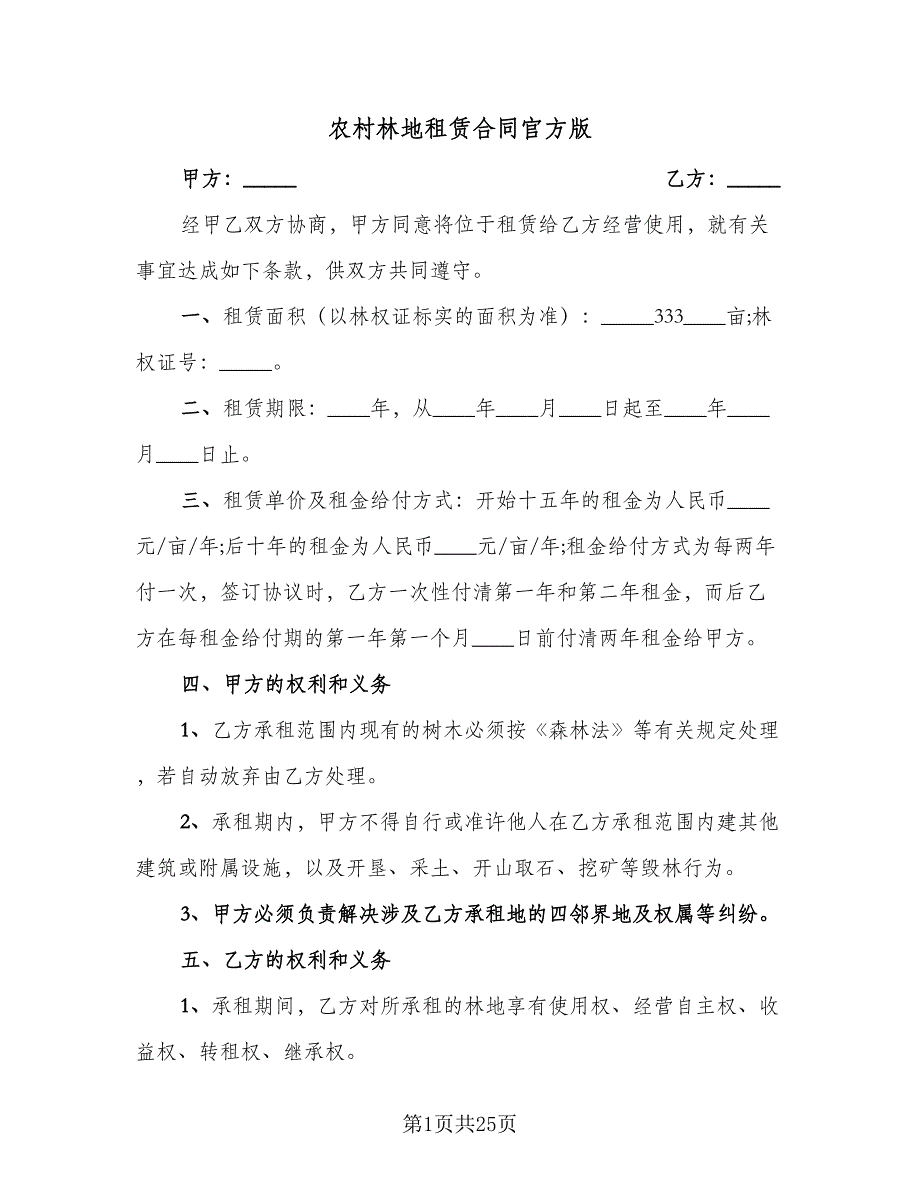 农村林地租赁合同官方版
甲方：_____ 乙方：_____
经甲乙双方协商，甲方同意将位于租赁给乙方经营使用，就有关
事宜达成如下条款，供双方共同遵守。
一、租赁面积（以林权证标实的面积为准）：_____333____亩;林
权证号：_____。
二、租赁期限：____年，从____年____月____日起至____年____
月____日止。
三、租赁单价及租金给付方式：开始十五年的租金为人民币____
元/亩/年;后十年的租金为人民币____元/亩/年;租金给付方式为每两年
付一次，签订协议时，乙方一次性付清第一年和第二年租金，而后乙
方在每租金给付期的第一年第一个月____日前付清两年租金给甲方。
四、甲方的权利和义务
1、乙方承租范围内现有的树木必须按《森林法》等有关规定处理
，若自动放弃由乙方处理。
2、承租期内，甲方不得自行或准许他人在乙方承租范围内建其他
建筑或附属设施，以及开垦、采土、开山取石、挖矿等毁林行为。
3、甲方必须负责解决涉及乙方承租地的四邻界地及权属等纠纷。
五、乙方的权利和义务
1、承租期间，乙方对所承租的林地享有使用权、经营自主权、收
益权、转租权、继承权。
第1页共25页